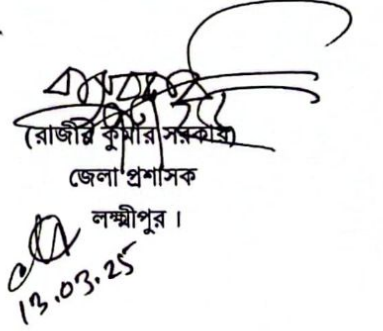 (রাজীব কুমার সরকার)
জেলা প্রশাসক
লক্ষ্মীপুর।
13.03.25